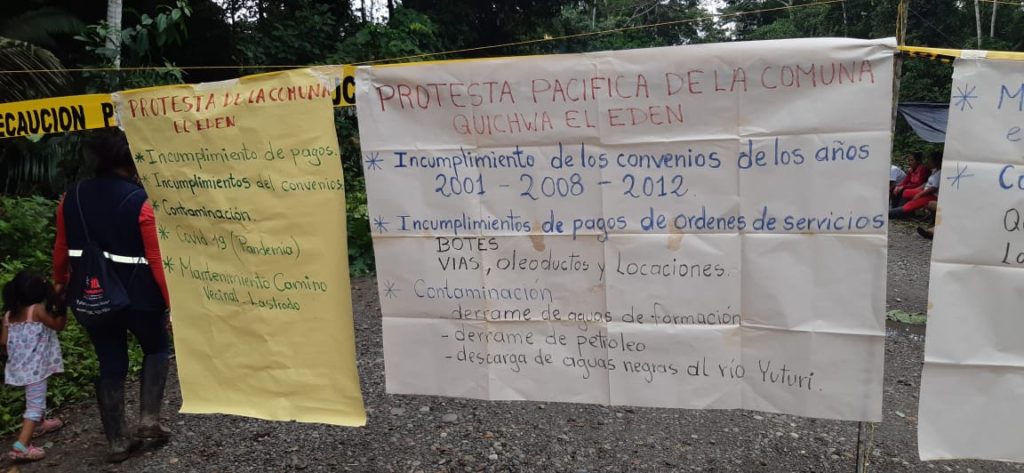 ECAUCION P
UC
PROTESTA DE LA COMUNA
EL EDEN
* Incumplimiento de pagos.
* Incumplimientos del convenios.
* Contaminación.
* Covid 19 (Pandemia)
* Mantenimiento Camino
Vecinal - Lastrado
PROTESTA PACIFICA DE LA COMUNA
QUICHWA EL EDEN
* Incumplimiento de los convenios de los años
2001 - 2008 - 2012.
* Incumplimientos de pagos de ordenes de servicios
BOTES
VIAS, oleoductos y Locaciones.
* Contaminación
- derrame de aguas de formación
- derrame de petroleo
- descarga de aguas negras al río Yuturi.
* M
e
* Co
Q
La